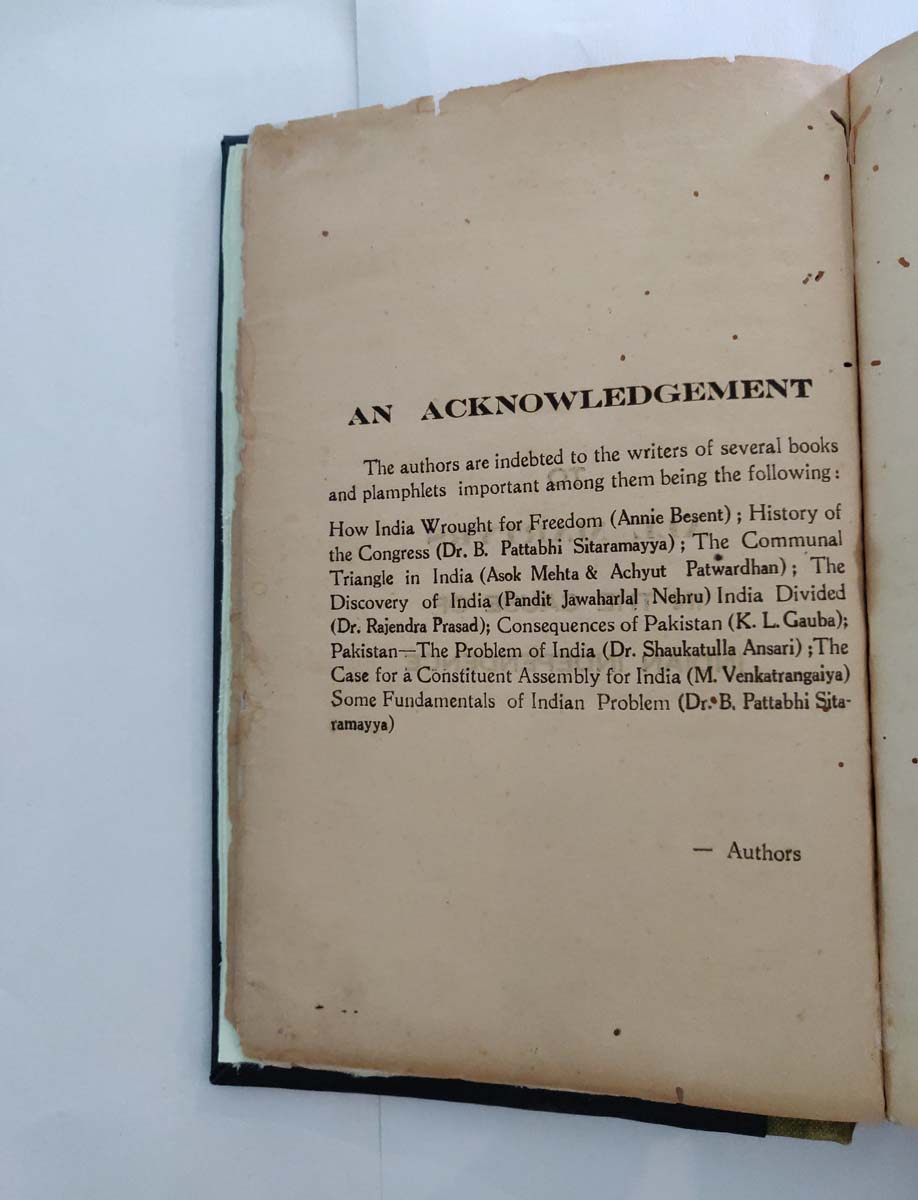 AN ACKNOWLEDGEMENT
The authors are indebted to the writers of several books
and plamphlets important among them being the following :
How India Wrought for Freedom (Annie Besent) ; History of
the Congress (Dr. B. Pattabhi Sitaramayya) ; The Communal
Triangle in India (Asok Mehta & Achyut Patwardhan) ; The
Discovery of India (Pandit Jawaharlal Nehru) India Divided
(Dr. Rajendra Prasad); Consequences of Pakistan (K. L. Gauba);
Pakistan—The Problem of India (Dr. Shaukatulla Ansari) ;The
Case for a Constituent Assembly for India (M. Venkatrangaiya)
Some Fundamentals of Indian Problem (Dr. B. Pattabhi Sita-
ramayya)
— Authors